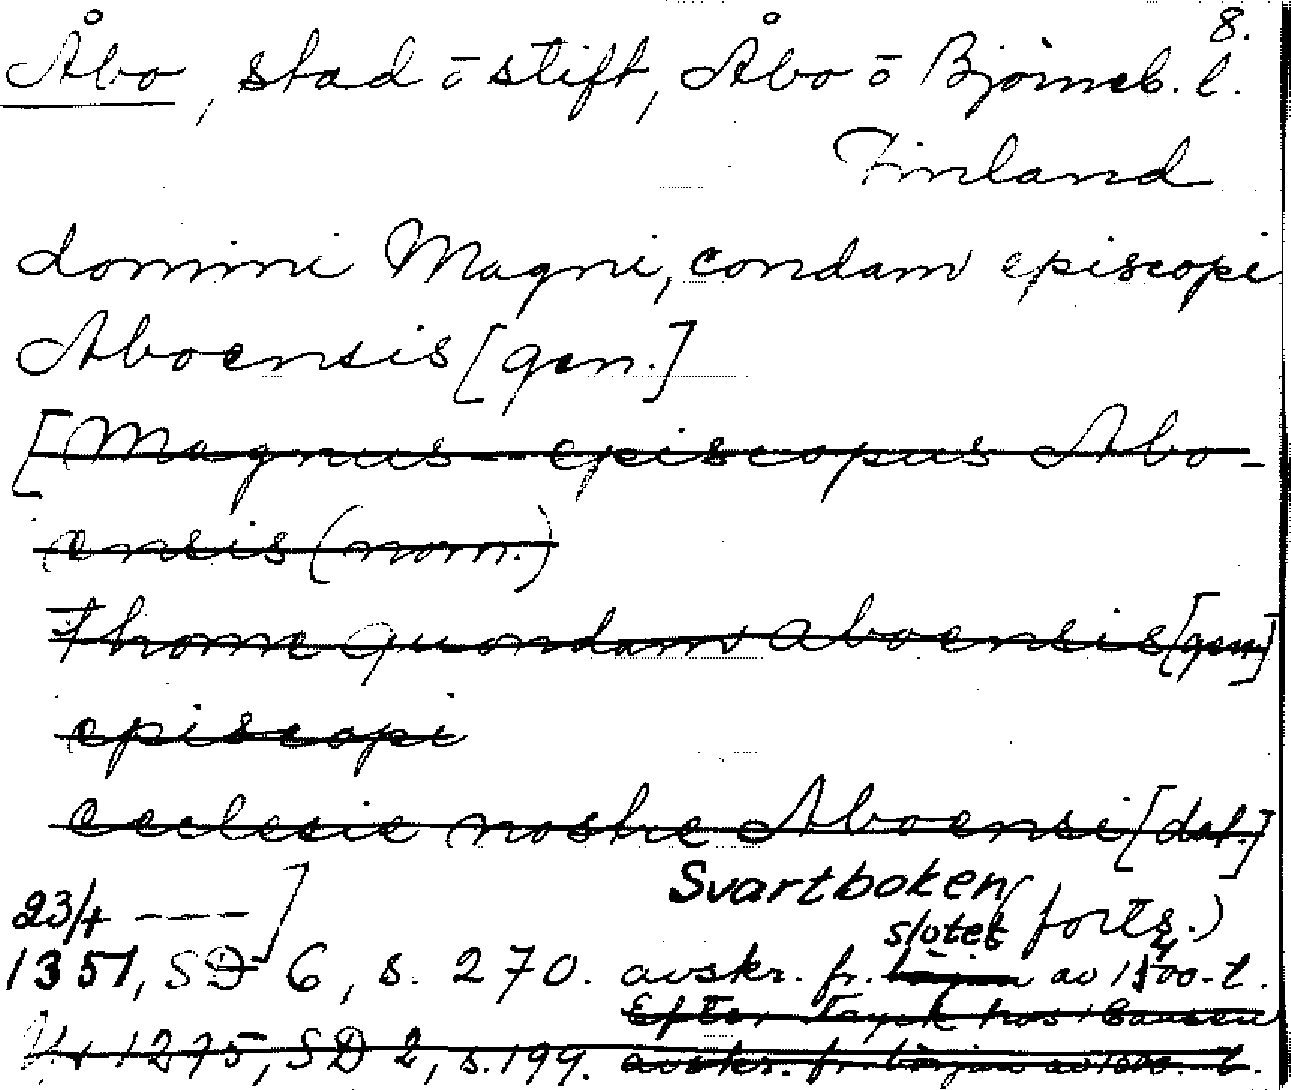 8.
Åbo, stad o stift, Åbo o Björneb. l.
Finland
domini Magni, condam episcopi
Aboensis [gen.]
[Magnus -- episcopus Abo-
ensis (nom.)
Thome quondam aboensis [gen.]
episcopi
ecclesie nostre Aboensi [dat.]
23/4 ---- ] Svartboken (forts.)
slutet
1351, SD 6, s. 270. avskr. fr. början av 1400-t.
Efter Tryck hos
1275, SD 2, s. 199. avskr. fr. början av 1500-t.